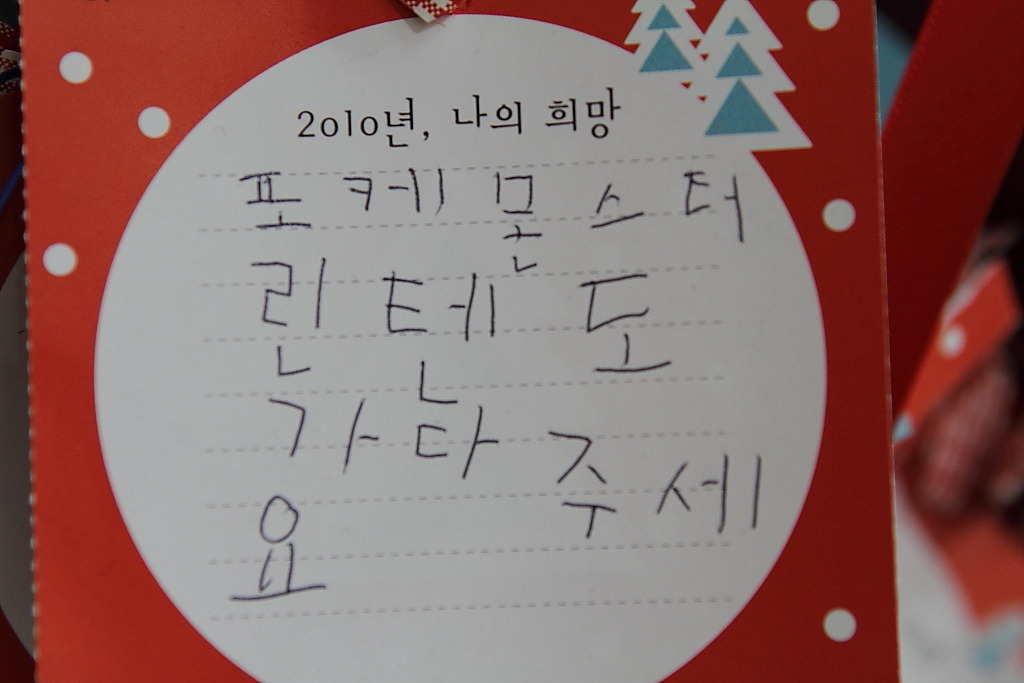 2010년, 나의 희망
포케몬스터
린텐도
가다주세
요